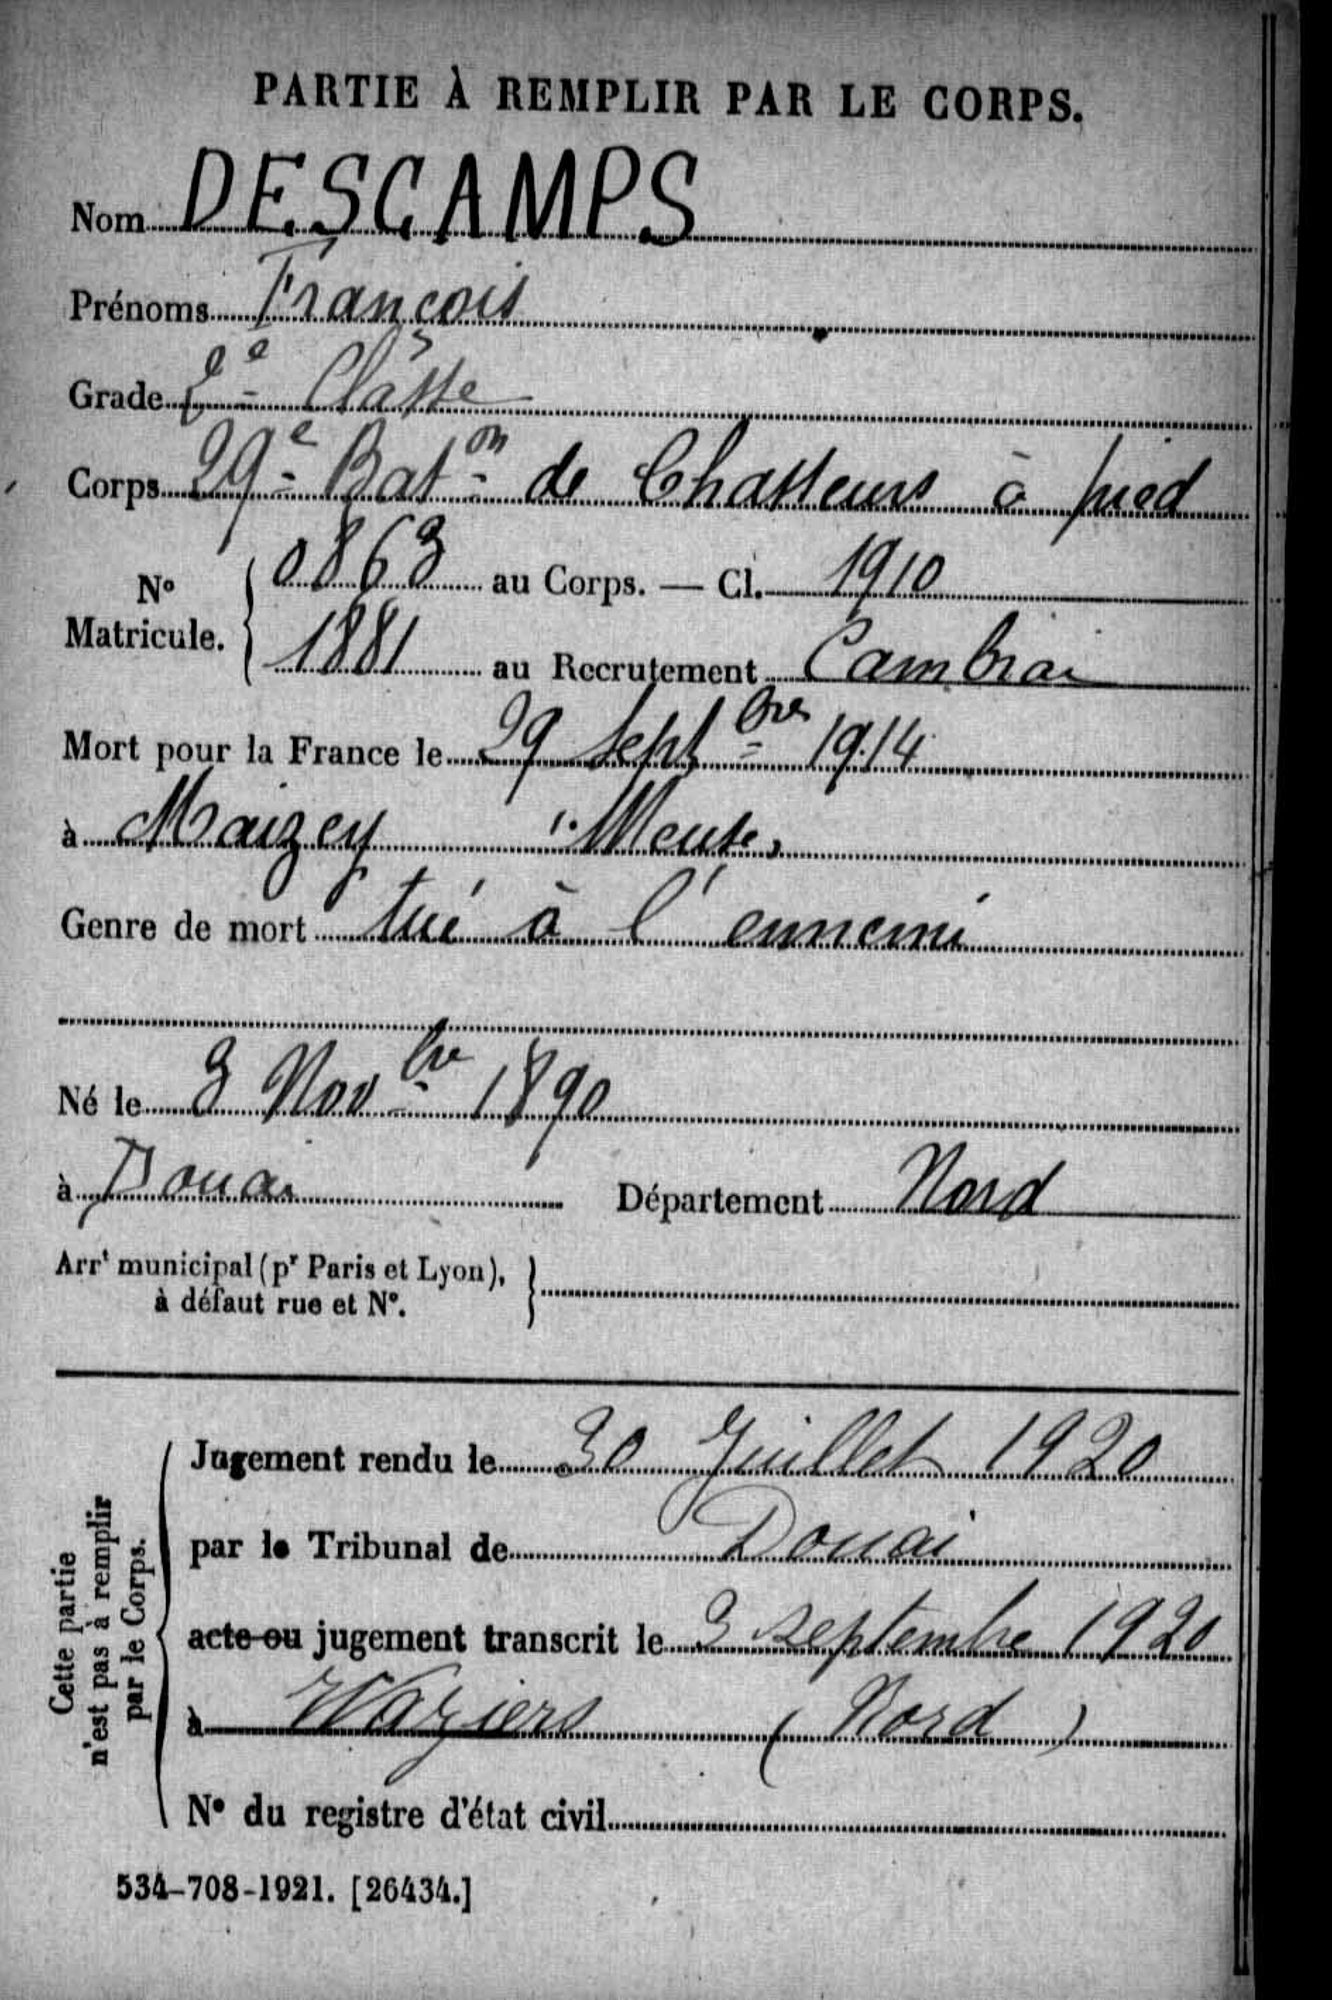 PARTIE À REMPLIR PAR LE CORPS.
Nom DESCAMPS
Prénoms François
Grade 2e Classe
Corps 29e Baton de Chasseurs à pied
No Matricule. { 0863 au Corps. — Cl. 1910
1881 au Recrutement Cambrai
Mort pour la France le 29 Septbre 1914
à Maizey "Meuse"
Genre de mort tué à l'ennemi
Né le 3 Novbre 1890
à Douai Département Nord
Arrt municipal (pr Paris et Lyon),
à défaut rue et No. }
Cette partie
n'est pas à remplir
par le Corps.
Jugement rendu le 30 Juillet 1920
par le Tribunal de Douai
acte ou jugement transcrit le 3 septembre 1920
à Waziers (Nord)
No du registre d'état civil
534-708-1921. [26434.]